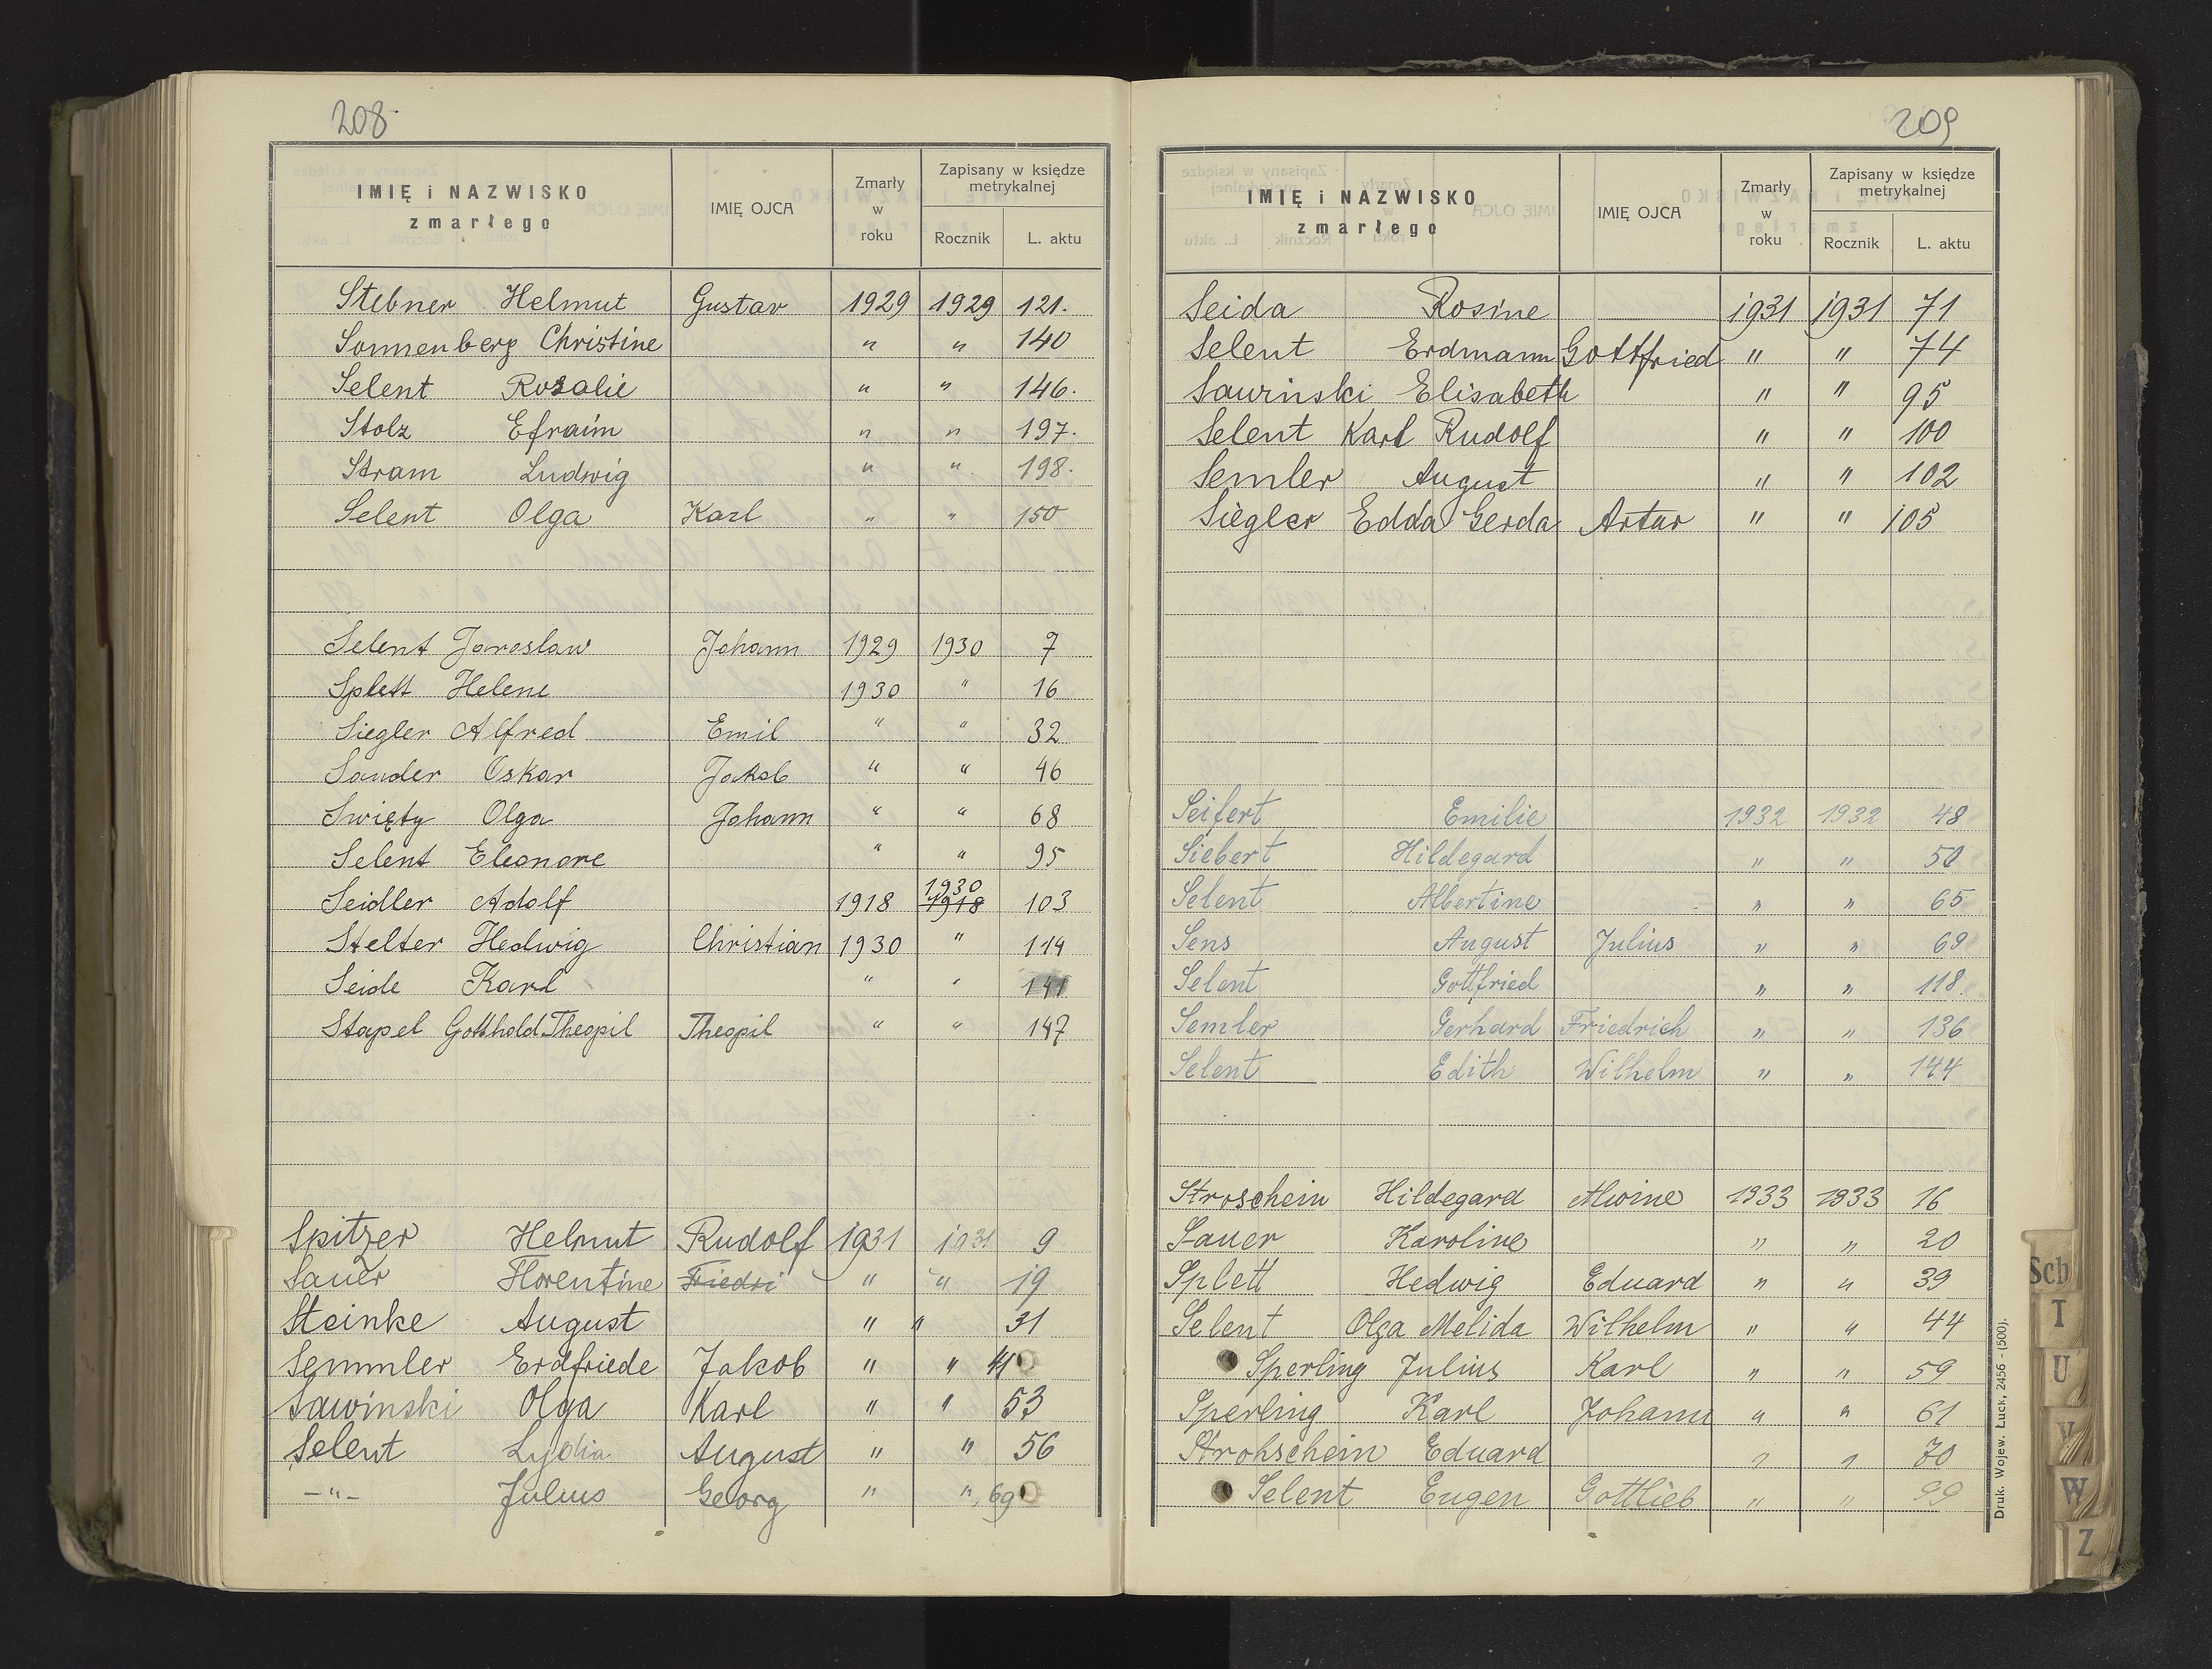 208.
IMIĘ i NAZWISKO zmarłego IMIĘ OJCA Zmarły w roku Zapisany w księdze metrykalnej Rocznik L. aktu
Stebner Helmut Gustav 1929 1929 121.
Sonnenberg Christine " " 140
Selent Rosalie " " 146.
Stolz Efraim " " 197.
Stram Ludwig " " 198.
Selent Olga Karl " " 150
Selent Jaroslaw Johann 1929 1930 7
Splett Helene 1930 " 16
Siegler Alfred Emil " " 32
Sander Oskar Jakob " " 46
Święty Olga Johann " " 68
Selent Eleonore " " 95
Seidler Adolf 1918 1930 1918 103
Stelter Hedwig Christian 1930 " 114
Seide Karl " " 141
Stapel Gotthold Theopil Theopil " " 147
Spitzer Helmut Rudolf 1931 1931 9
Sauer Florentine Friedri " " 19
Steinke August " " 31
Semmler Erdfriede Jakob " " 41
Sawinski Olga Karl " " 53
Selent Lydia August " " 56
-"- Julius Georg " " 69
209
IMIĘ i NAZWISKO zmarłego IMIĘ OJCA Zmarły w roku Zapisany w księdze metrykalnej Rocznik L. aktu
Seida Rosine — 1931 1931 71
Selent Erdmann Gottfried " " 74
Sawinski Elisabeth " " 95
Selent Karl Rudolf " " 100
Semler August " " 102
Siegler Edda Gerda Artur " " 105
Seifert Emilie 1932 1932 48
Siebert Hildegard " " 50
Selent Albertine " " 65
Sens August Julius " " 69
Selent Gottfried " " 118.
Semler Gerhard Friedrich " " 136
Selent Edith Wilhelm " " 144
Stroschein Hildegard Alwine 1933 1933 16
Sauer Karoline " " 20
Splett Hedwig Eduard " " 39
Selent Olga Melida Wilhelm " " 44
Sperling Julius Karl " " 59
Sperling Karl Johann " " 61
Strohschein Eduard " " 70
Selent Eugen Gottlieb " " 99
Druk. Wojew. Łuck, 2456 - (500).
Sch
T
U
V
W
Z